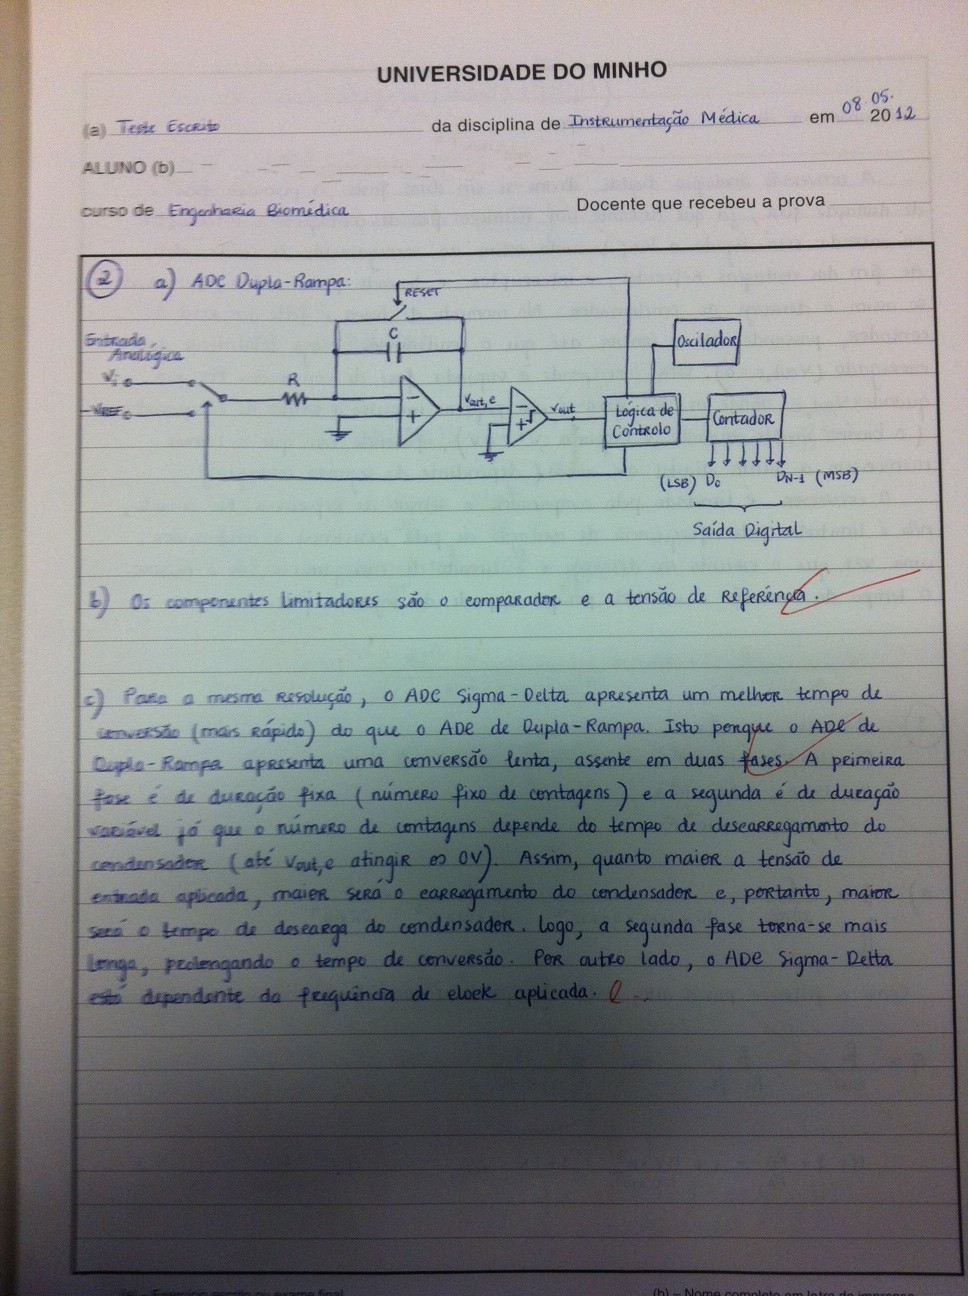 UNIVERSIDADE DO MINHO
(a) Teste Escrito da disciplina de Instrumentação Médica em 08.05.2012
ALUNO (b)
curso de Engenharia Biomédica Docente que recebeu a prova
2 a) ADC Dupla-Rampa:
RESET
C
Entrada Analógica
Oscilador
Vi
R
-VREF
-
+
Vout,e
-
+
Vout
Lógica de Controlo
Contador
(LSB) D0 DN-1 (MSB)
Saída Digital
b) Os componentes limitadores são o comparador e a tensão de referência.
c) Para a mesma resolução, o ADC Sigma-Delta apresenta um melhor tempo de
conversão (mais rápido) do que o ADC de Dupla-Rampa. Isto porque o ADC de
Dupla-Rampa apresenta uma conversão lenta, assente em duas fases. A primeira
fase é de duração fixa (número fixo de contagens) e a segunda é de duração
variável já que o número de contagens depende do tempo de descarregamento do
condensador (até Vout,e atingir os 0V). Assim, quanto maior a tensão de
entrada aplicada, maior será o carregamento do condensador e, portanto, maior
será o tempo de descarga do condensador. Logo, a segunda fase torna-se mais
longa, prolongando o tempo de conversão. Por outro lado, o ADC Sigma-Delta
está dependente da frequência de clock aplicada.
(b) – Nome completo em letra de imprensa